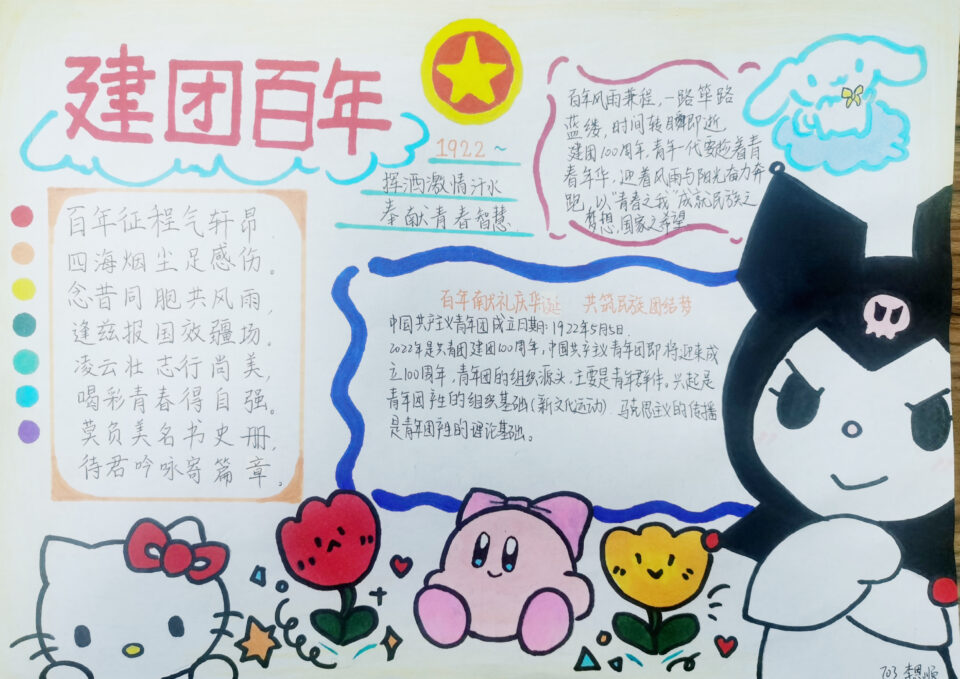 建团百年
1922~
挥洒激情汗水
奉献青春智慧
百年风雨兼程,一路筚路
蓝缕,时间转瞬即逝
建团100周年,青年一代要趁着青
春年华,迎着风雨与阳光奋力奔
跑,以"青春之我"成就民族之
梦想,国家之希望
百年征程气轩昂,
四海烟尘足感伤。
念昔同胞共风雨,
逢兹报国效疆场。
凌云壮志行尚美,
喝彩青春得自强。
莫负美名书史册,
待君吟咏寄篇章。
百年献礼庆华诞 共筑民族团结梦
中国共产主义青年团成立日期:1922年5月5.
2022年是共青团建团100周年,中国共产主义青年团即将迎来成
立100周年,青年团的组织源头,主要是青年群体。兴起是
青年团产生的组织基础(新文化运动).马克思主义的传播
是青年团产生的理论基础。
703 李